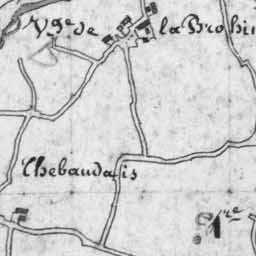 Vge de la Brohin
Chebaudais
S re